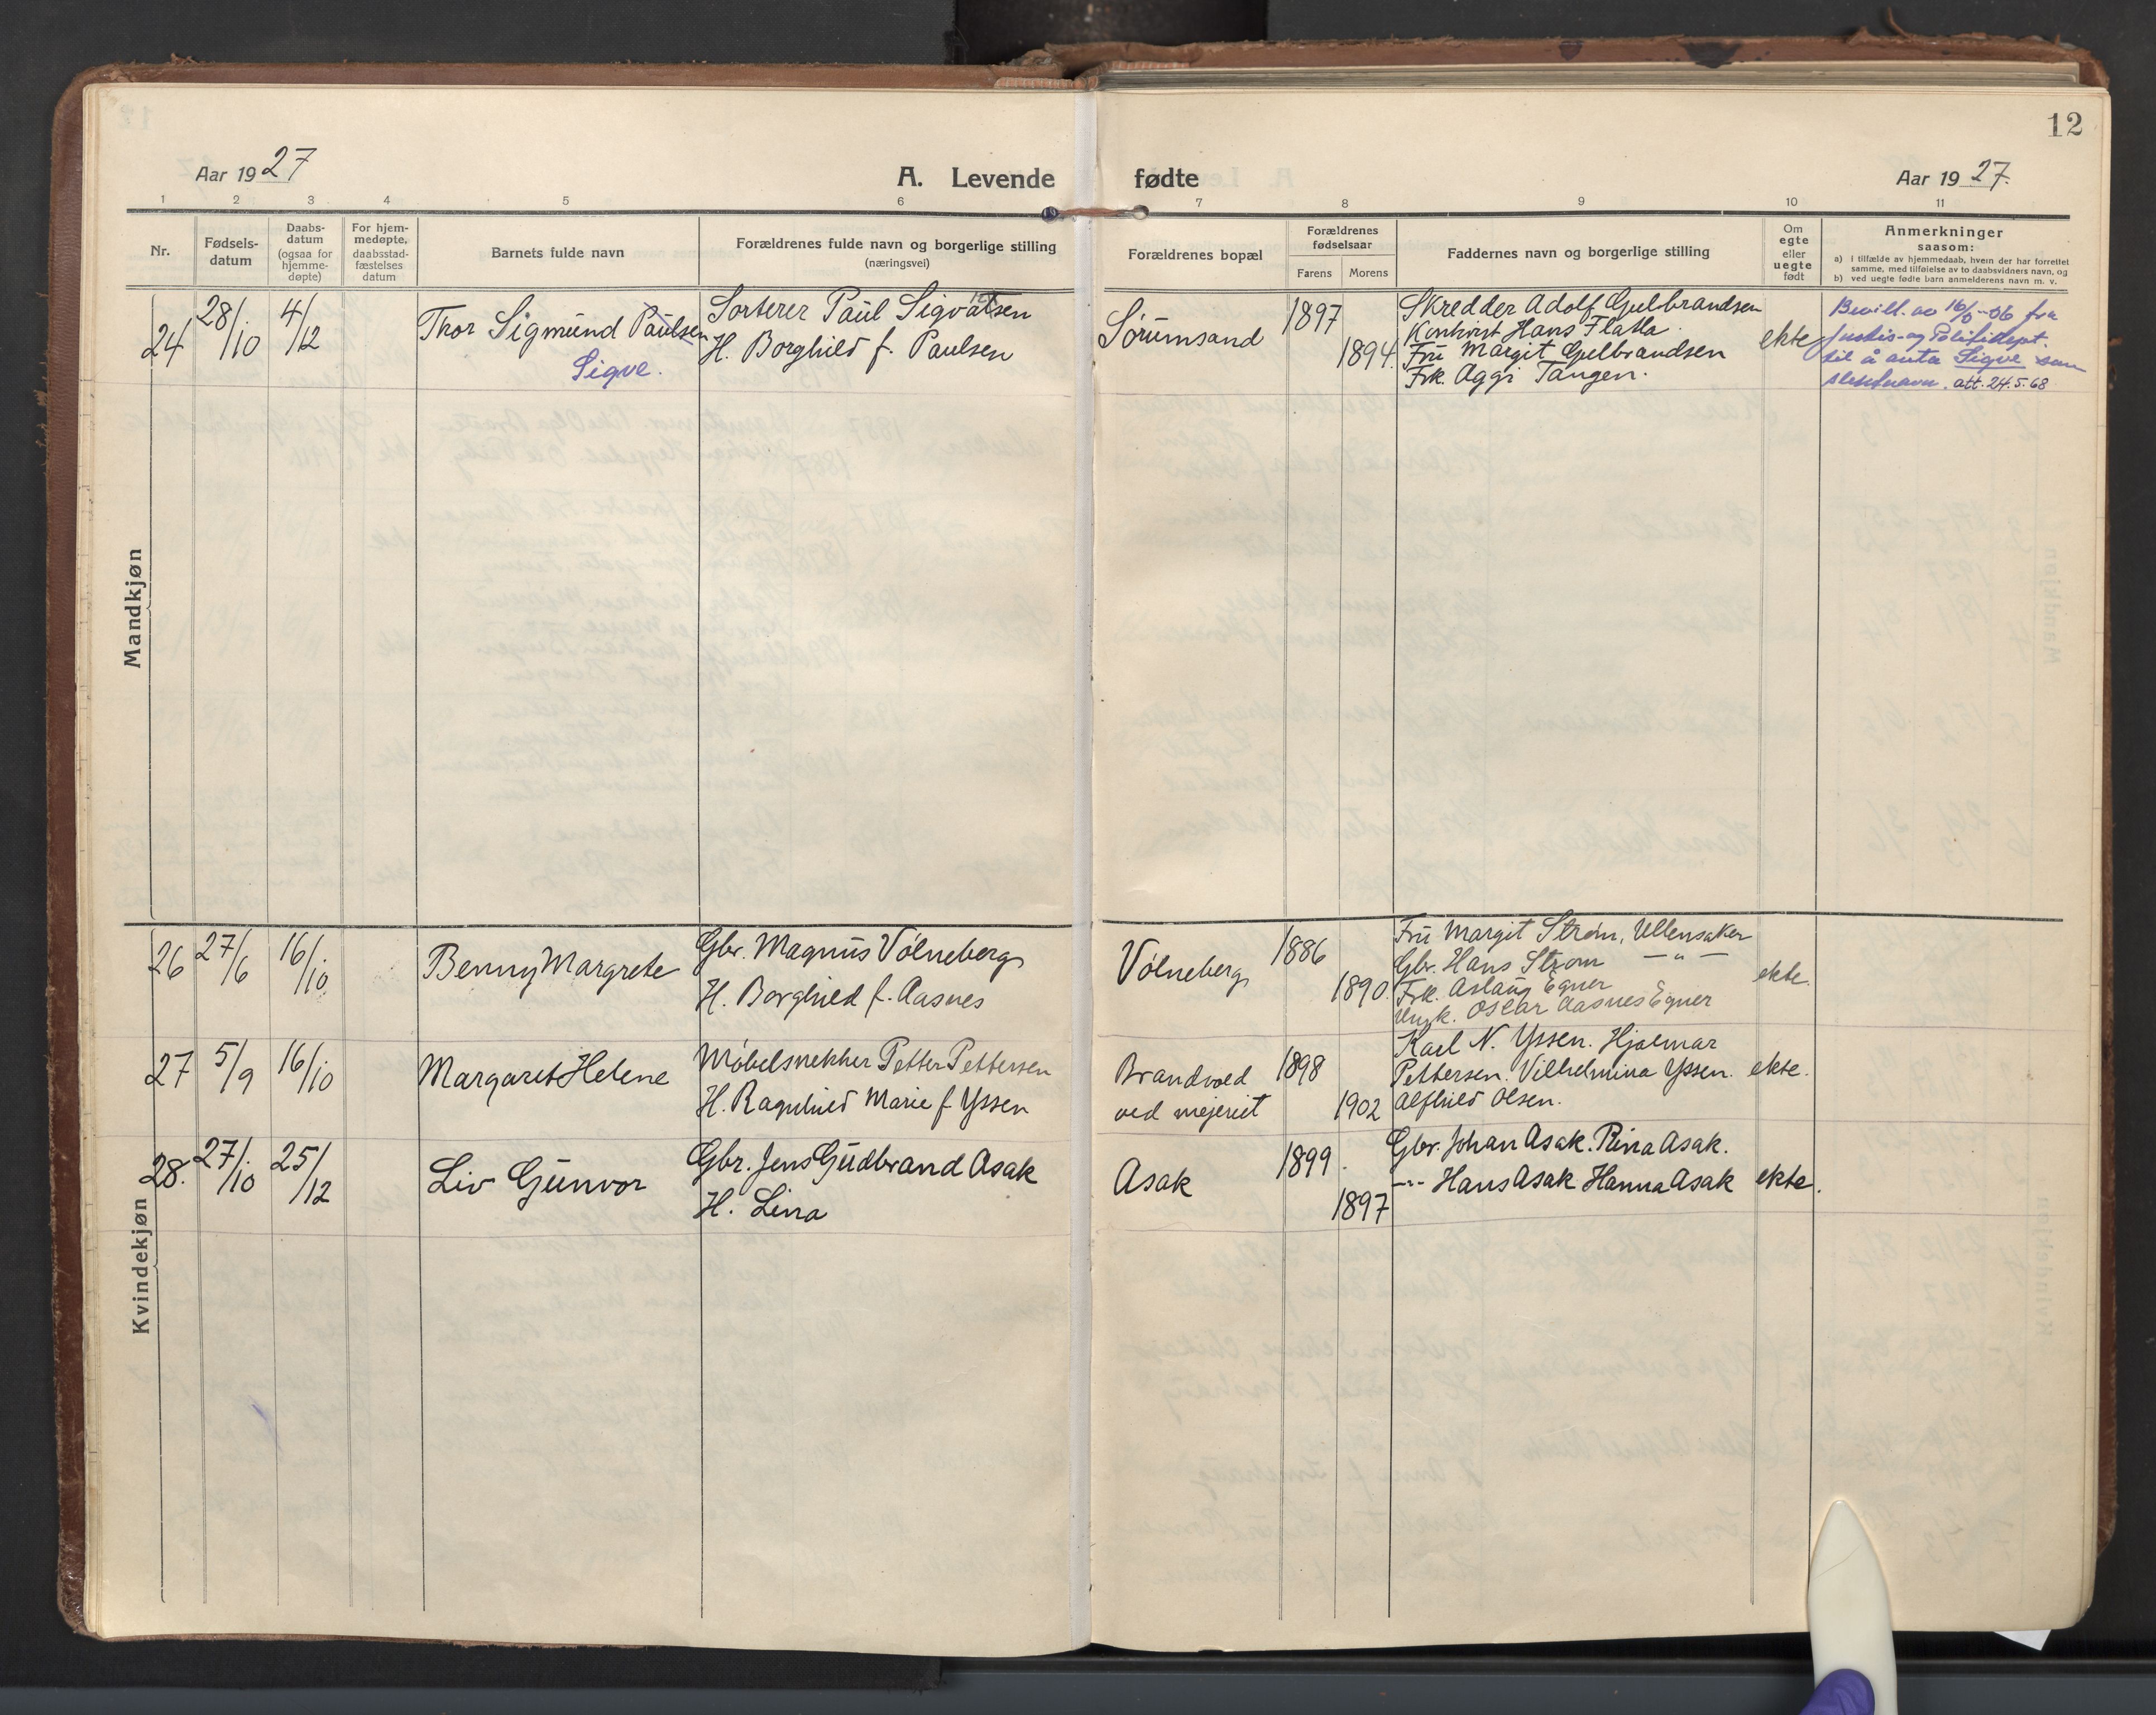 12
Aar 1927
A. Levende fødte
Aar 1927.
1 2 3 4 5 6 7 8 9 10 11
Nr.
Fødsels-
datum
Daabs-
datum
(ogsaa for
hjemme-
døpte)
For hjem-
medøpte,
daabsstad-
fæstelses
datum
Barnets fulde navn
Forældrenes fulde navn og borgerlige stilling
(næringsvei)
Forældrenes bopæl
Forældrenes
fødselsaar
Farens Morens
Faddernes navn og borgerlige stilling
Om
egte
eller
uegte
født
Anmerkninger
saasom:
a) i tilfælde av hjemmedaab, hvem der har forrettet
samme, med tilføielse av to daabsvidners navn, og
b) ved uegte fødte barn anmelderens navn m. v.
Mandkjøn
24
28/10
4/12
Thor Sigmund Paulsen
Sigve.
Sorterer Paul Sigvatsen
H. Borghild f. Paulsen
Sørumsand
1897
1894.
Skredder Adolf Gulbrandsen
Hans Flatla.
Fru Margit Gulbrandsen
Frk. Aggi Tangen.
ekte
Bevill. av fra
Justis- og Politidept.
til å anta Sigve som
slektsnavn. att. 24.5.68
Kvindekjøn
26
27/6
16/10
Benny Margrete
Gbr. Magnus Vølneberg
H. Borghild f. Aasnes
Vølneberg
1886
1890.
Fru Margit Strøm, Ullensaker
Gbr. Hans Strøm — " —
Frk. Aslaug Egner
Ungk. Oscar Aasnes Egner
ekte.
27
5/9
16/10
Margaret Helene
Møbelsnekker Petter Pettersen
H. Ragnhild Marie f Yssen
Brandvold
ved mejeriet
1898
1902
Karl N. Yssen. Hjalmar
Pettersen. Vilhelmina Yssen.
Alfhild Olsen.
ekte.
28.
27/10
25/12
Liv Gunvor
Gbr. Jens Gudbrand Asak
H. Lina
Asak
1899.
1897
Gbr. Johan Asak. Rina Asak.
-"- Hans Asak Hanna Asak
ekte.